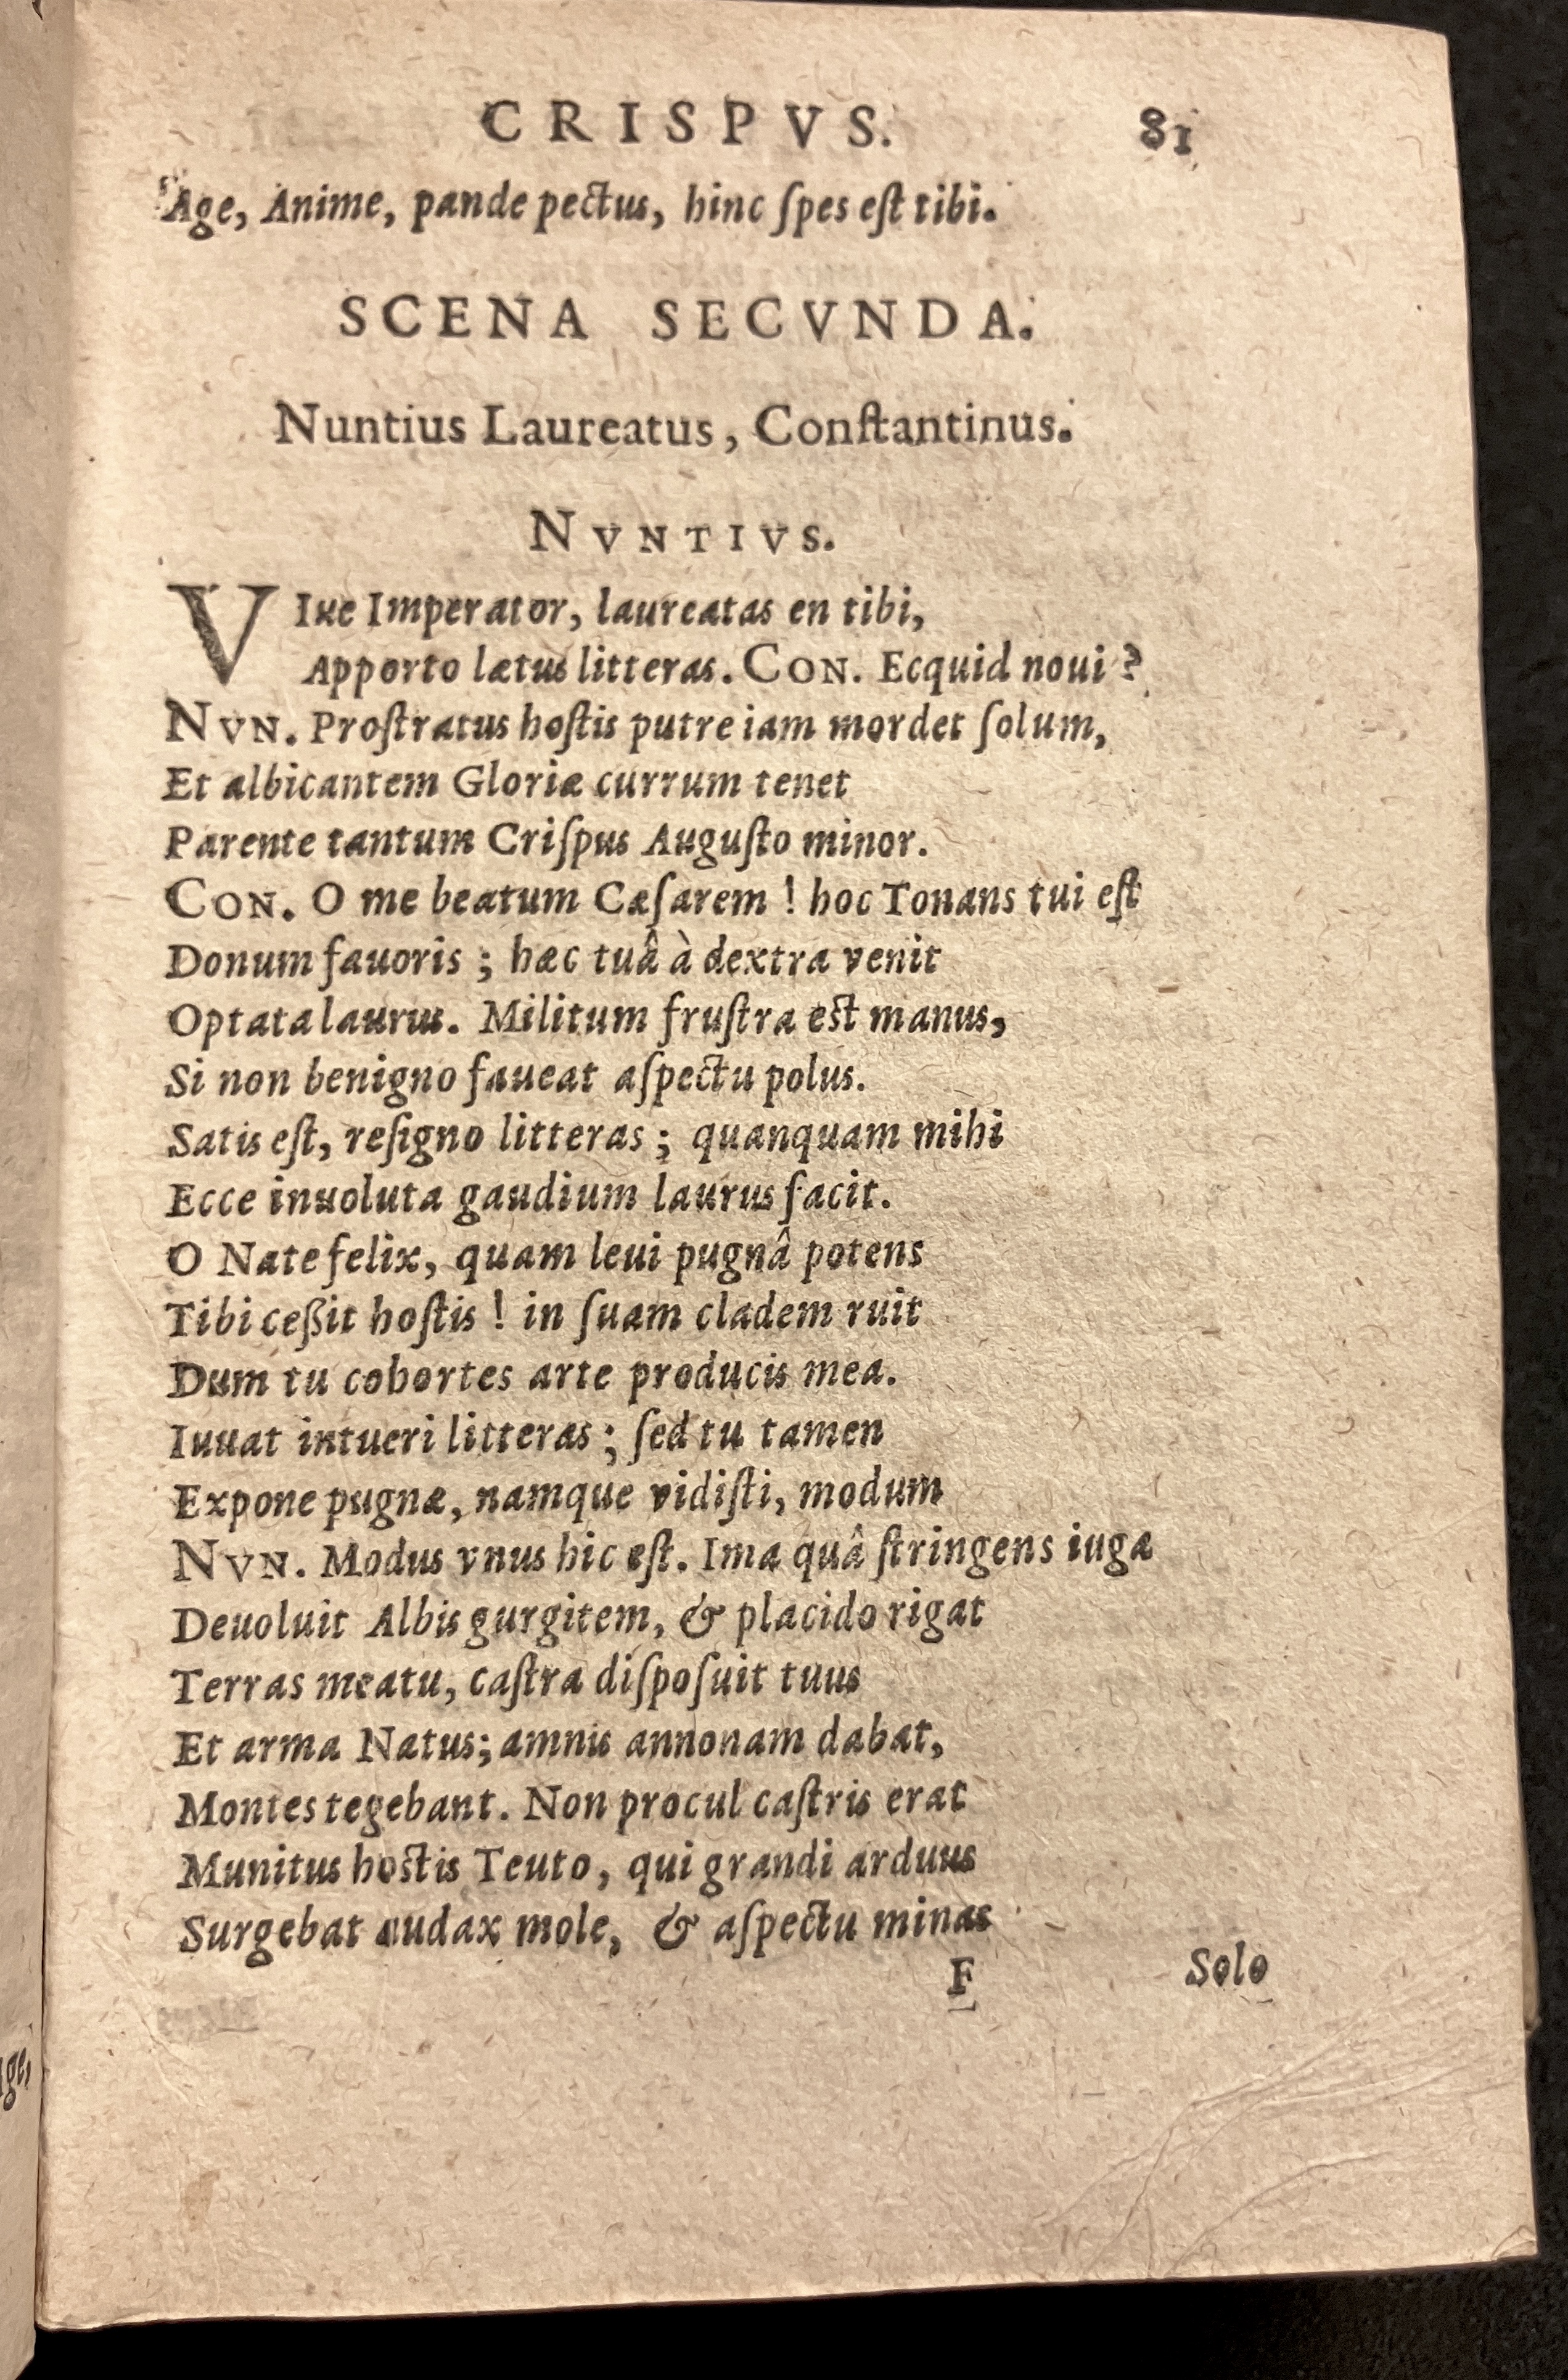 CRISPVS. 81
Age, Anime, pande pectus, hinc ſpes eſt tibi.
SCENA SECVNDA.
Nuntius Laureatus, Conſtantinus.
NVNTIVS.
VIue Imperator, laureatas en tibi,
Apporto lætus litteras. CON. Ecquid noui?
NVN. Proſtratus hoſtis putre iam mordet ſolum,
Et albicantem Gloriæ currum tenet
Parente tantum Criſpus Auguſto minor.
CON. O me beatum Cæſarem! hoc Tonans tui eſt
Donum fauoris; hæc tuâ à dextra venit
Optata laurus. Militum fruſtra eſt manus,
Si non benigno faueat aſpectu polus.
Satis eſt, reſigno litteras; quanquam mihi
Ecce inuoluta gaudium laurus facit.
O Nate felix, quam leui pugnâ potens
Tibi ceßit hoſtis! in ſuam cladem ruit
Dum tu cohortes arte producis mea.
Iuuat intueri litteras; ſed tu tamen
Expone pugnæ, namque vidiſti, modum
NVN. Modus vnus hic eſt. Ima quâ ſtringens iuga
Deuoluit Albis gurgitem, & placido rigat
Terras meatu, caſtra diſpoſuit tuus
Et arma Natus; amnis annonam dabat,
Montes tegebant. Non procul caſtris erat
Munitus hoſtis Teuto, qui grandi arduus
Surgebat audax mole, & aſpectu minas
F Solo